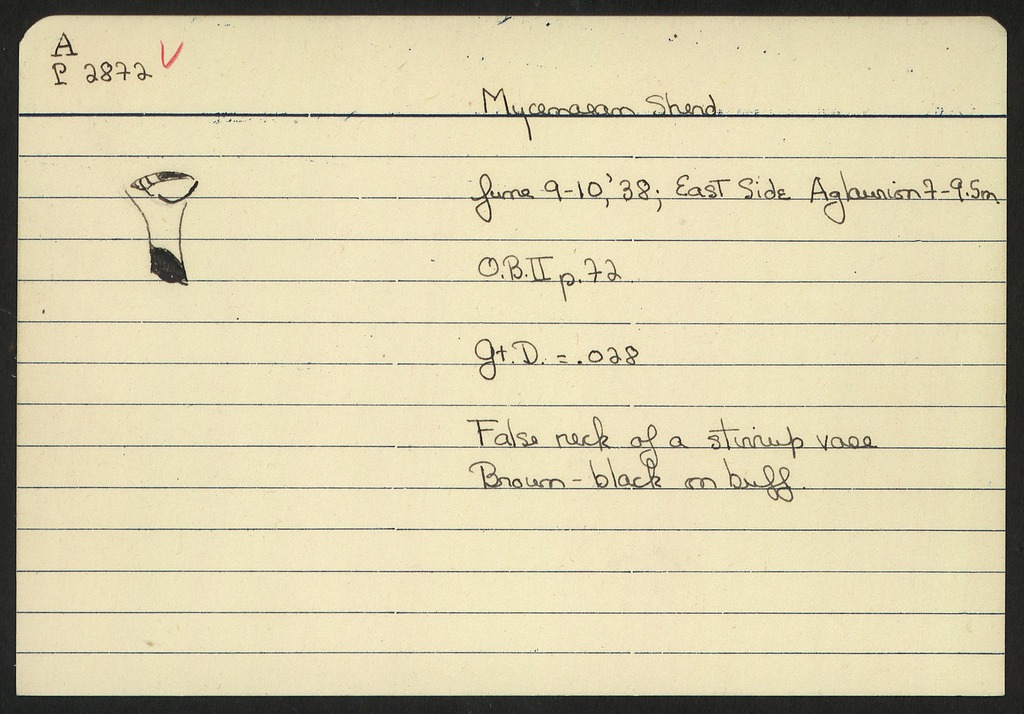 A
P 2872
Mycenaean Sherd
June 9-10, '38; East Side Aglaurion 7-9.5m
O.B.II p.72
Gt. D. = .028
False neck of a stirrup vase
Brown-black on buff.